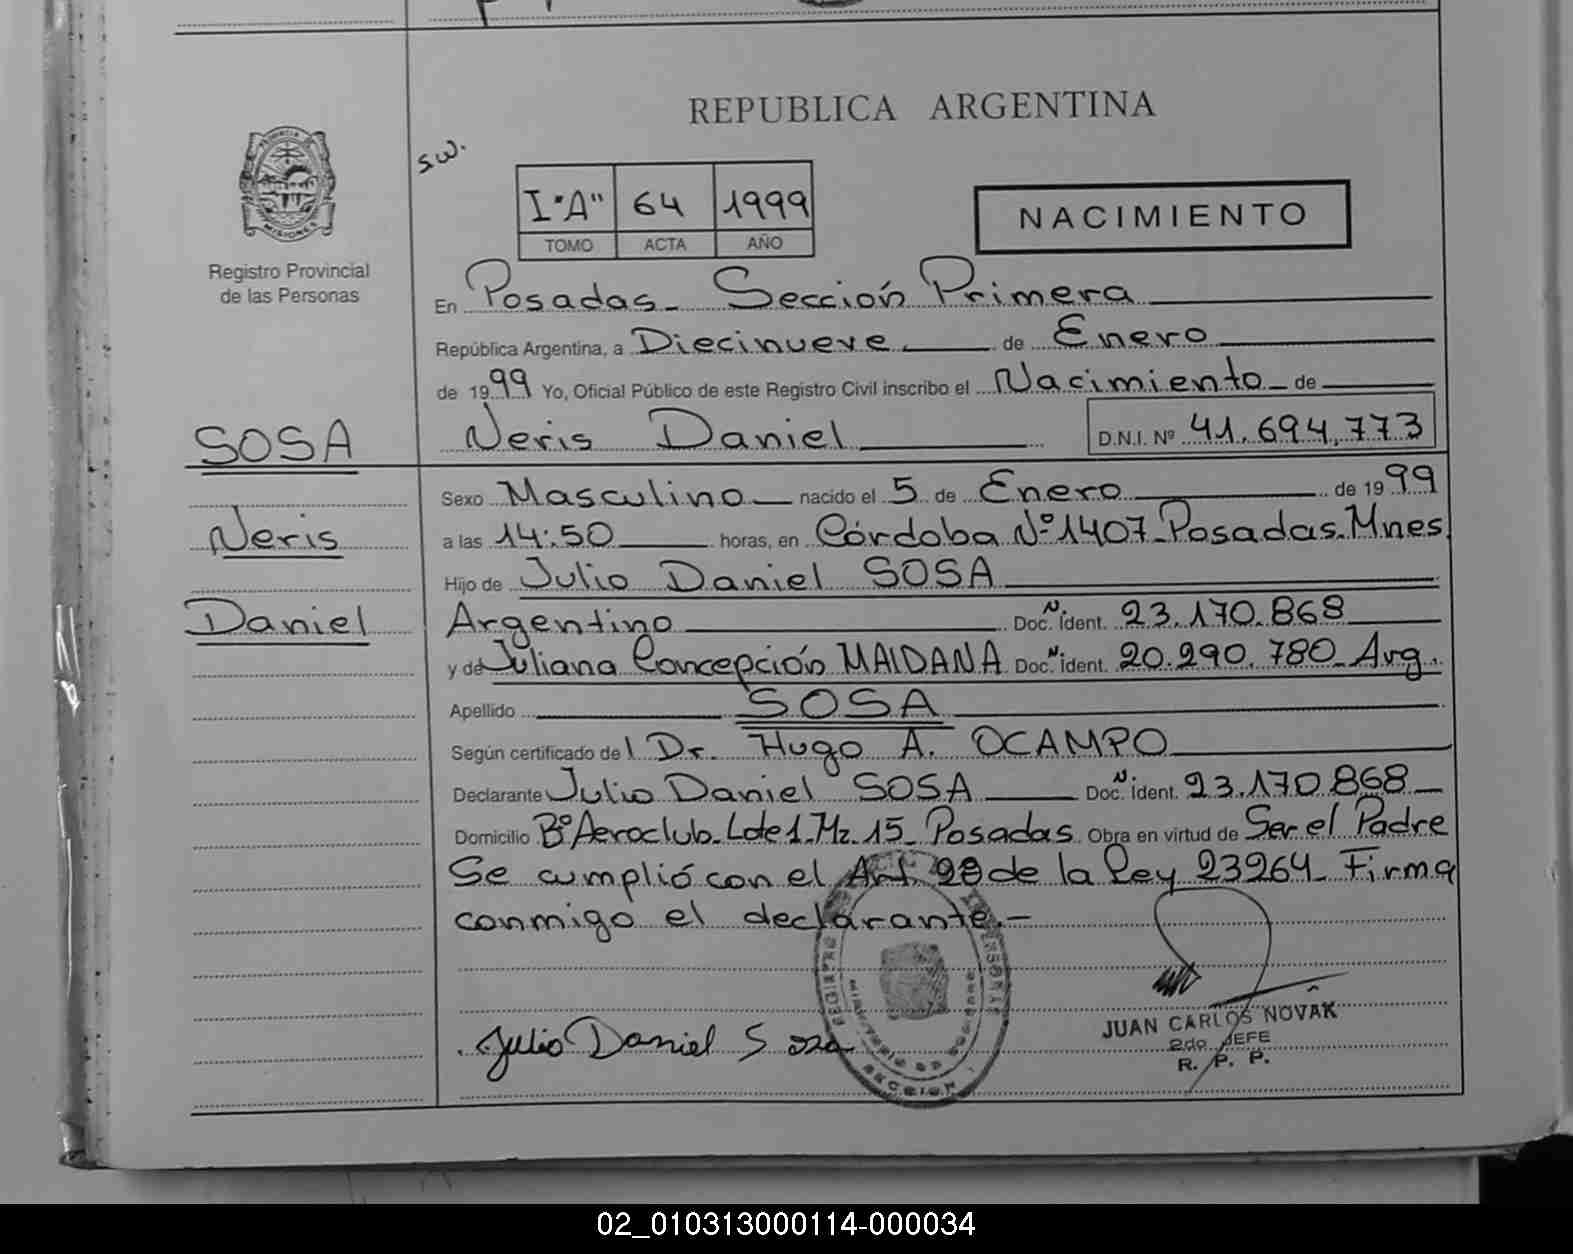 REPUBLICA ARGENTINA
s.w.
I "A" 64 1999
TOMO ACTA AÑO
NACIMIENTO
PROVINCIA
MISIONES
Registro Provincial
de las Personas
En Posadas - Sección Primera
República Argentina, a Diecinueve de Enero
de 1999 Yo, Oficial Público de este Registro Civil inscribo el Nacimiento de
Neris Daniel D.N.I. Nº 41.694.773
SOSA
Neris
Daniel
Sexo Masculino nacido el 5 de Enero de 1999
a las 14:50 horas, en Córdoba Nº 1407 - Posadas - Mnes.
Hijo de Julio Daniel SOSA
Argentino Doc. N. Ident. 23.170.868
y de Juliana Concepción MAIDANA Doc. N. Ident. 20.290.780 - Arg.
Apellido SOSA
Según certificado del Dr. Hugo A. OCAMPO
Declarante Julio Daniel SOSA Doc. N. Ident. 23.170.868
Domicilio Bº Aeroclub - Lote 1 - Mz 15 - Posadas Obra en virtud de Ser el Padre
Se cumplió con el Art. 28 de la Ley 23264 - Firma
conmigo el declarante. -
Julio Daniel Sosa
SECCION
JUAN CARLOS NOVAK
2do JEFE
R. P. P.
02_010313000114-000034